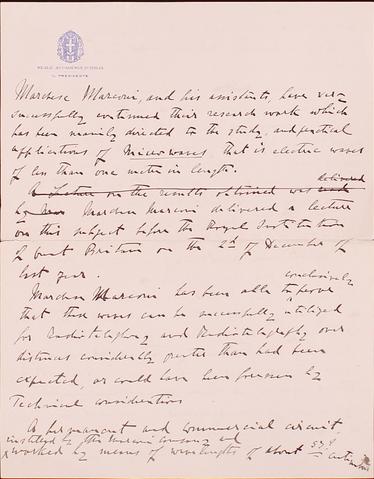 REALE ACCADEMIA D'ITALIA
IL PRESIDENTE
Marchese Marconi, and his assistants, have very
successfully continued their research work which
has been mainly directed to the study, and practical
applications of microwaves that is electric waves
of less than one metre in length.
A lecture on the results obtained was delivered
by Marchese Marconi delivered a lecture
on this subject before the Royal Institution
of Great Britain on the 2d of December of
last year.
Marchese Marconi has been able to prove conclusively
that these waves can be successfully utilized
for Radiotelephony and Radiotelegraphy over
distances considerably greater than had been
expected, or could have been foreseen by
Technical considerations
A permanent and commercial circuit,
installed by the Marconi Company and
worked by means of wavelengths of about 57